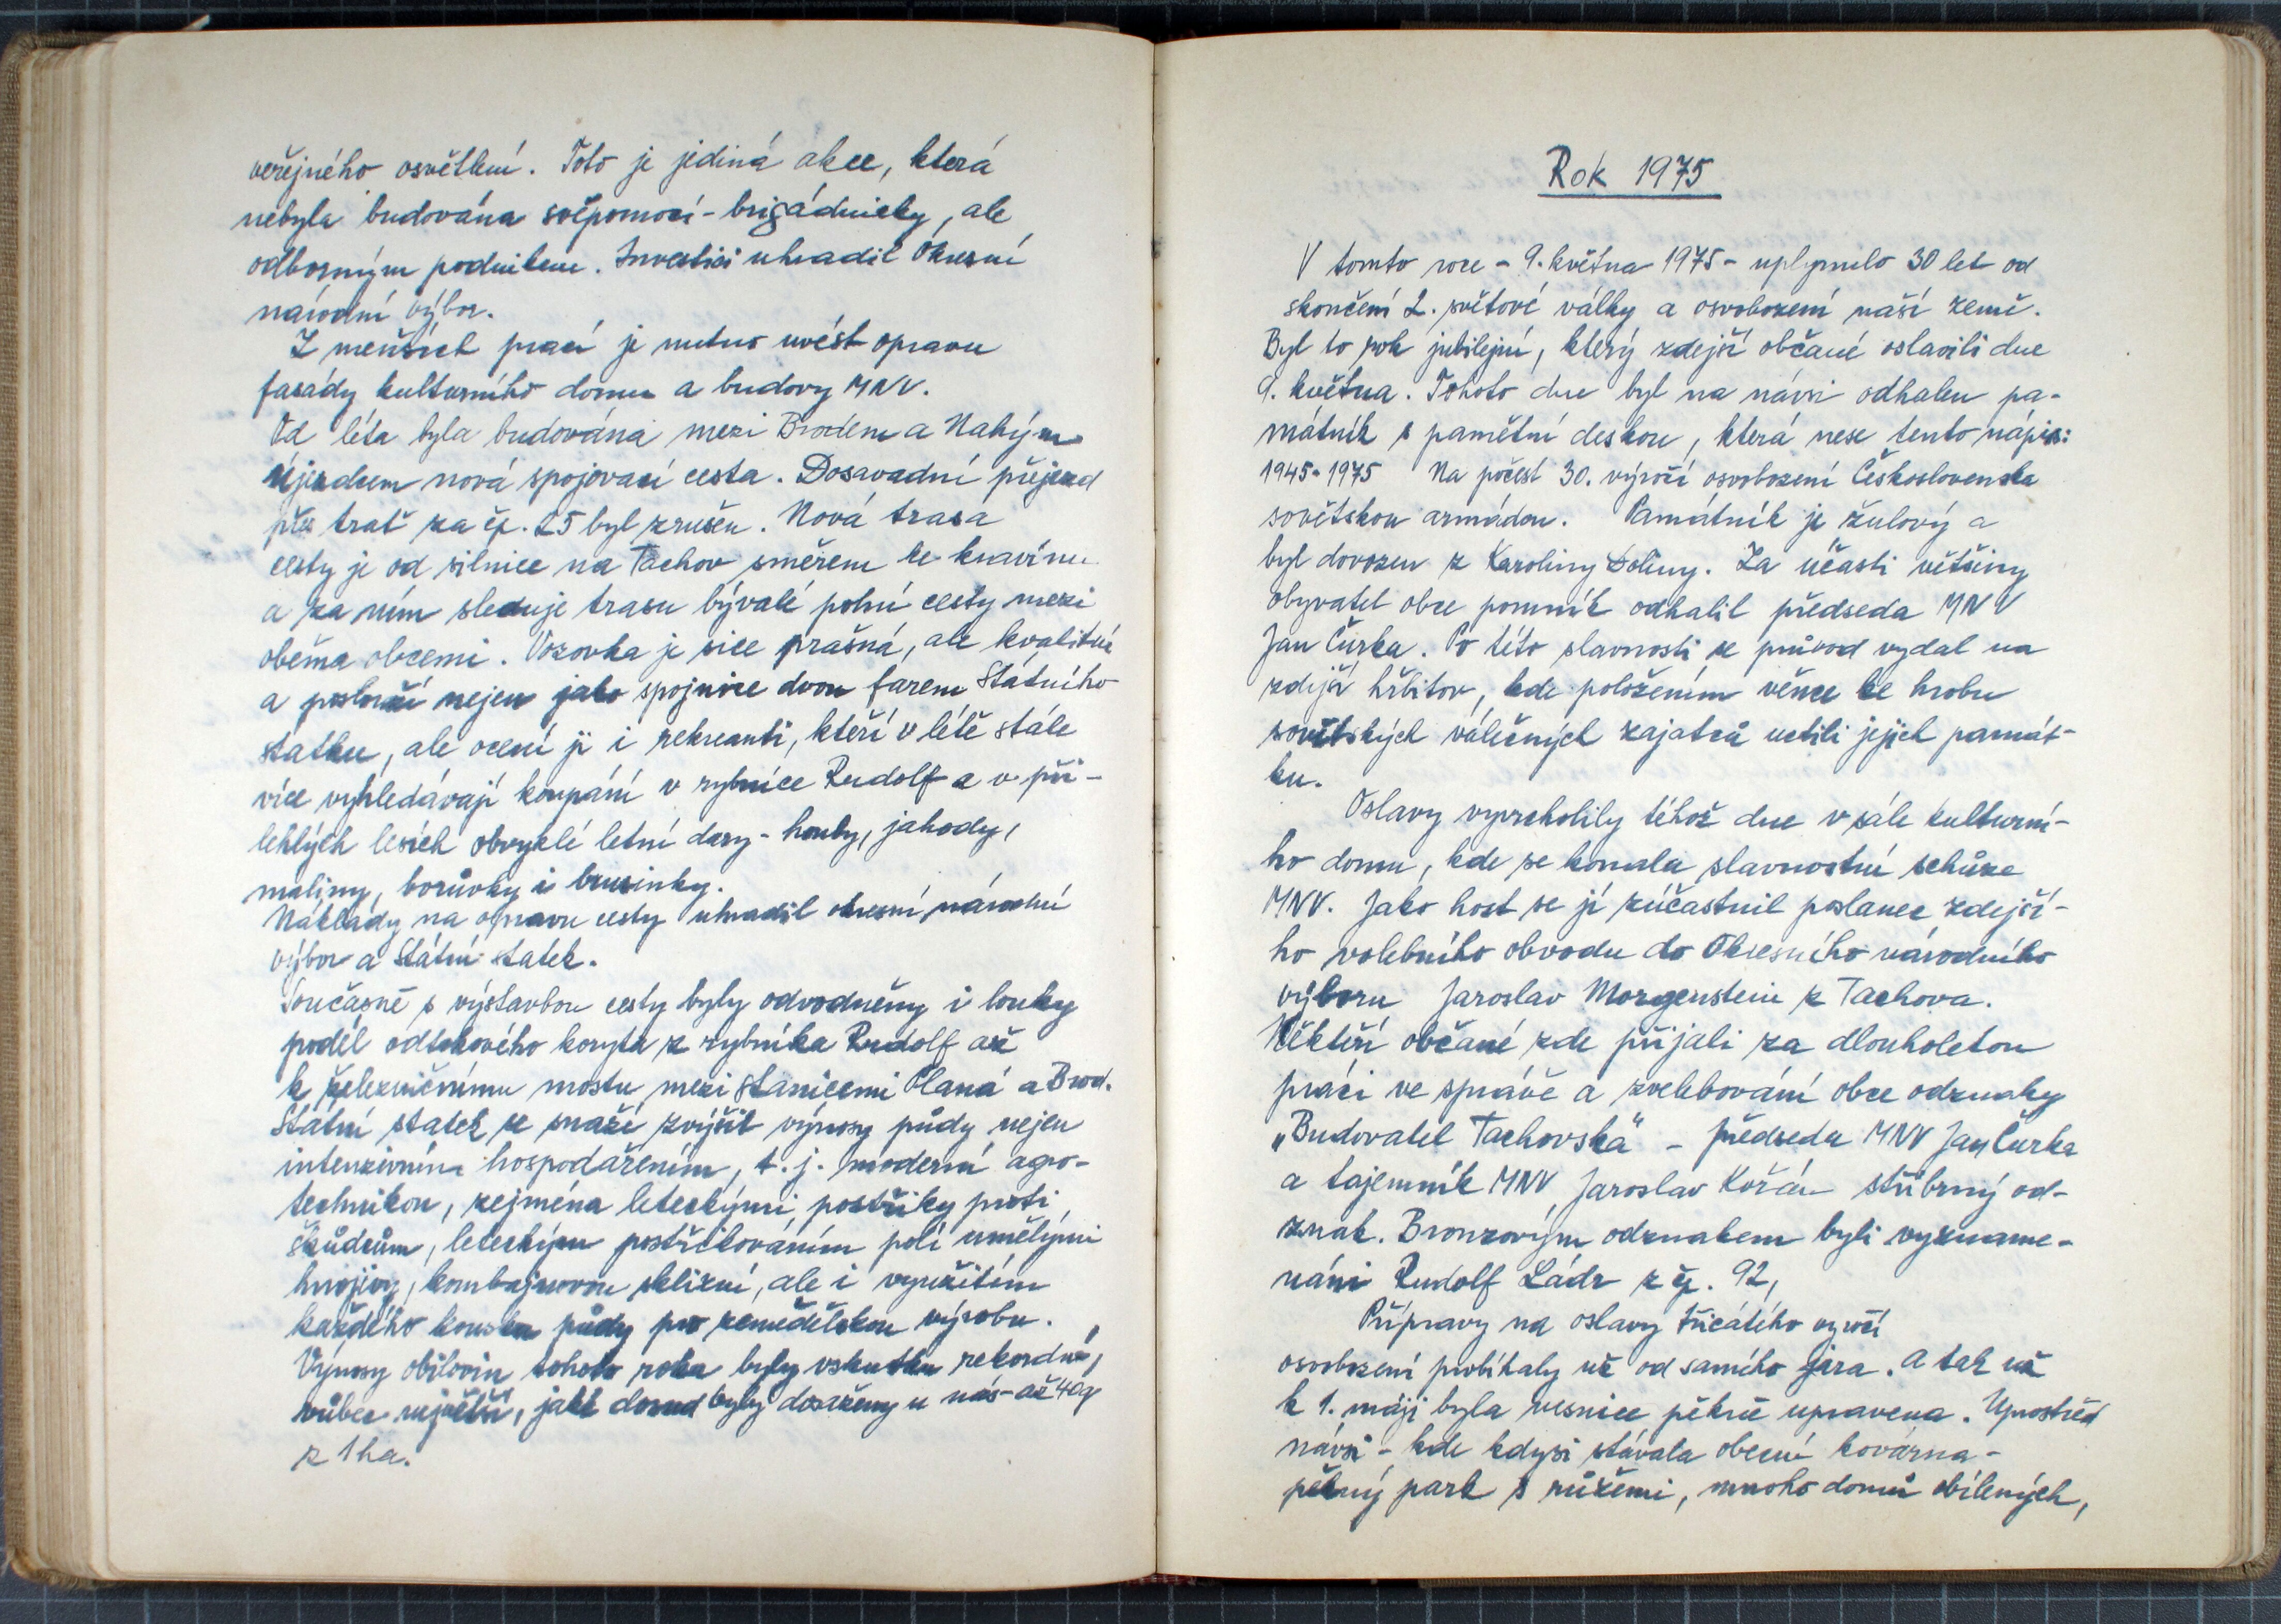 veřejného osvětlení. Toto je jediná akce, která
nebyla budována svépomocí - brigádnicky, ale
odborným podnikem. Investici uhradil Okresní
národní výbor.
Z menších prací je nutno uvést opravu
fasády kulturního domu a budovy MNV.
Od léta byla budována mezi Brodem a Nahým
Újezdcem nová spojovací cesta. Dosavadní přejezd
přes trať za čp. 25 byl zrušen. Nová trasa
cesty je od silnice na Tachov směrem ke kravínu
a za ním sleduje trasu bývalé polní cesty mezi
oběma obcemi. Vozovka je sice prašná, ale kvalitní
a poslouží nejen jako spojnice dvou farem Státního
statku, ale ocení ji i rekreanti, kteří v létě stále
více vyhledávají koupání v rybníce Rudolf a v při-
lehlých lesích obvyklé letní dary - houby, jahody,
maliny, borůvky i brusinky.
Náklady na opravu cesty uhradil okresní národní
výbor a Státní statek.
Současně s výstavbou cesty byly odvodněny i louky
podél odtokového koryta z rybníka Rudolf až
k železničnímu mostu mezi stanicemi Planá a Brod.
Státní statek se snaží zvýšit výnosy půdy nejen
intenzivním hospodařením, t. j. moderní agro-
technikou, zejména leteckými postřiky proti
škůdcům, leteckým postřikováním polí umělými
hnojivy, kombajnovou sklizní, ale i využitím
každého kousku půdy pro zemědělskou výrobu.
Výnosy obilovin tohoto roku byly vskutku rekordní,
vůbec největší, jaké dosud byly dosaženy u nás - až 40q
z 1 ha.
Rok 1975
V tomto roce - 9. května 1975 - uplynulo 30 let od
skončení 2. světové války a osvobození naší země.
Byl to rok jubilejní, který zdejší občané oslavili dne
9. května. Tohoto dne byl na návsi odhalen pa-
mátník s pamětní deskou, která nese tento nápis:
1945-1975 Na počest 30. výročí osvobození Československa
sovětskou armádou. Památník je žulový a
byl dovozen z Karoliny Doliny. Za účasti většiny
obyvatel obce pomník odhalil předseda MNV
Jan Čurka. Po této slavnosti se průvod vydal na
zdejší hřbitov, kde položením věnce ke hrobu
sovětských válečných zajatců uctili jejich památ-
ku.
Oslavy vyvrcholily téhož dne v sále kulturní-
ho domu, kde se konala slavnostní schůze
MNV. Jako host se jí zúčastnil poslanec zdejší-
ho volebního obvodu do Okresního národního
výboru Jaroslav Morgenstein z Tachova.
Někteří občané zde přijali za dlouholetou
práci ve správě a zvelebování obce odznaky
„Budovatel Tachovska“ - předseda MNV Jan Čurka
a tajemník MNV Jaroslav Kořán stříbrný od-
znak. Bronzovým odznakem byli vyzname-
náni Rudolf Ládr z čp. 92,
Přípravy na oslavy třicátého výročí
osvobození probíhaly už od samého jara. A tak už
k 1. máji byla vesnice pěkně upravena. Uprostřed
návsi - kde kdysi stávala obecní kovárna -
pěkný park s růžemi, mnoho domů obílených,